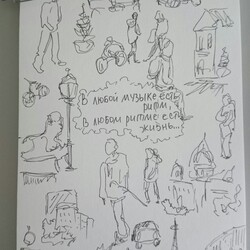 В ЛЮБОЙ МУЗЫКЕ ЕСТЬ
РИТМ,
В ЛЮБОМ РИТМЕ ЕСТЬ
ЖИЗНЬ...